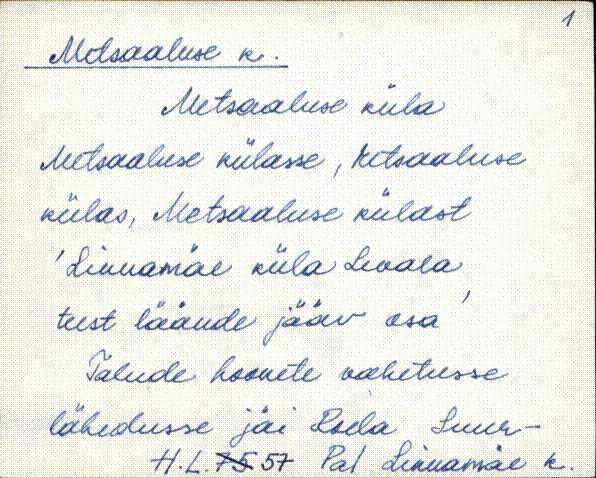 1
Metsaaluse k.
Metsaaluse küla
Metsaaluse külasse, Metsaaluse
külas, Metsaaluse külast
'Linnamäe küla Levala
teest läände jääv osa'
Talude hoonete vahetusse
lähedusse jäi Roela Suur-
H.L. 75 57 Pal Linnamäe k.